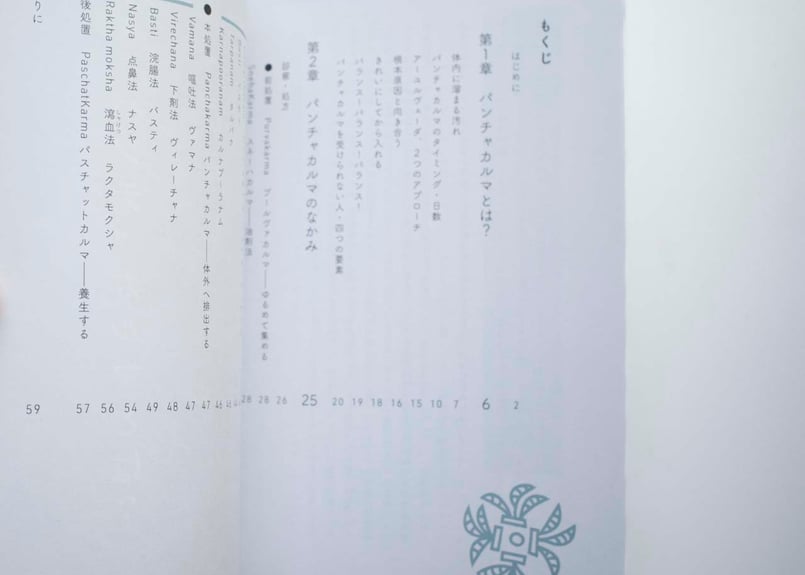 もくじ
はじめに 2
第1章 パンチャカルマとは? 6
体内に溜まる汚れ 7
パンチャカルマのタイミング・日数 10
アーユルヴェーダ、2つのアプローチ 15
根本原因と向き合う 16
きれいにしてから入れる 18
バランス!バランス!バランス! 19
パンチャカルマを受けられない人・四つの要素 20
第2章 パンチャカルマのなかみ 25
診察・処方 26
●前処置 Purvakarma プールヴァカルマ──ゆるめて集める 28
SnehaKarma スネーハカルマ──油剤法 28
Karnapooranam カルナプーラナム 46
●本処置 Panchakarma パンチャカルマ──体外へ排出する 47
Vamana 嘔吐法 ヴァマナ 47
Virechana 下剤法 ヴィレーチャナ 48
Basti 浣腸法 バスティ 49
Nasya 点鼻法 ナスヤ 54
Raktha moksha 瀉血法 ラクタモクシャ 56
後処置 PaschatKarma パスチャットカルマ──養生する 57
りに 59